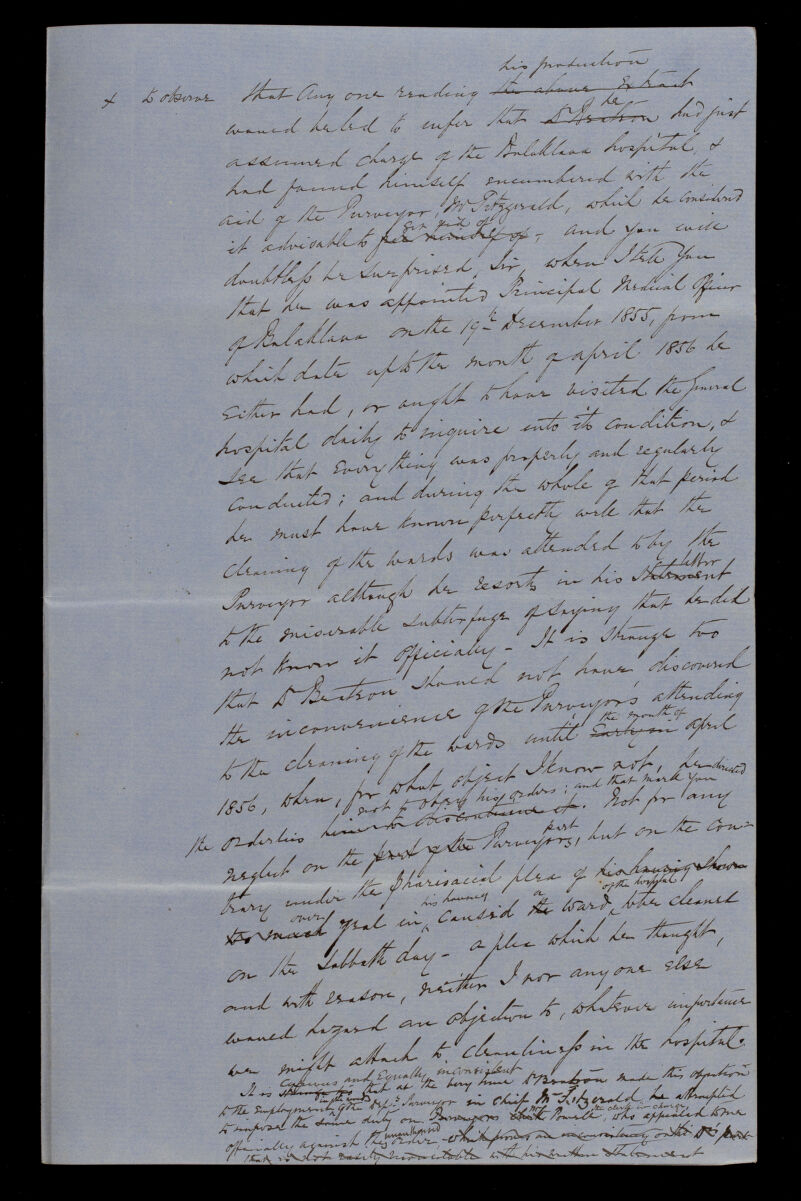 his production
x to observe that any one reading the above Extract
would be led to infer that Dr Beatson he had just
assumed charge of the Balaklava hospital, &
had found himself encumbered with the
aid of the Purveyor, Mr Fitzgerald, which he considered
get rid of
it advisable to, and you will
doubtless be surprised, Sir, when I tell you
that he was appointed Principal Medical Officer
of Balaklava on the 19th December 1855, from
which date up to the month of April 1856 he
either had, or ought to have visited the General
hospital daily to inquire into its condition, &
see that Every thing was properly and regularly
conducted; and during the whole of that period
he must have known perfectly well that the
cleaning of the wards was attended to by the
letter
Purveyor although he resorts in his Statement
to the miserable subterfuge of saying that he did
not know it officially - It is strange too
that Dr Beatson should not have discovered
the inconvenience of the Purveyor's attending
the month of
to the cleaning of the wards until Early in April
1856, when, for what object I know not, he directed
not to obey his orders; and that mark you
the orderlies him to discontinue it. Not for any
part
neglect on the part of the Purveyors, but on the con-
trary under the Pharisaical plea of his having shown
over his having a of the hospital
too much zeal in, caused the ward, to be cleaned
on the Sabbath day - a plea which he thought,
and with reason, neither I nor any one else
would hazard an objection to, whatever importance
we might attach to cleanliness in the hospital.
Curious and Equally inconsistent
It is that at the very time Dr Beatson made this objection
to the employment of the Purveyor in chief Mr Fitzgerald, he attempted
the clerk in charge
to impose the same duty on Purveyors Clerk Powell, who appealed to me
officially against the order - which proves an inconsistency on the Dr's part
that is not easily reconcilable with his written Statement